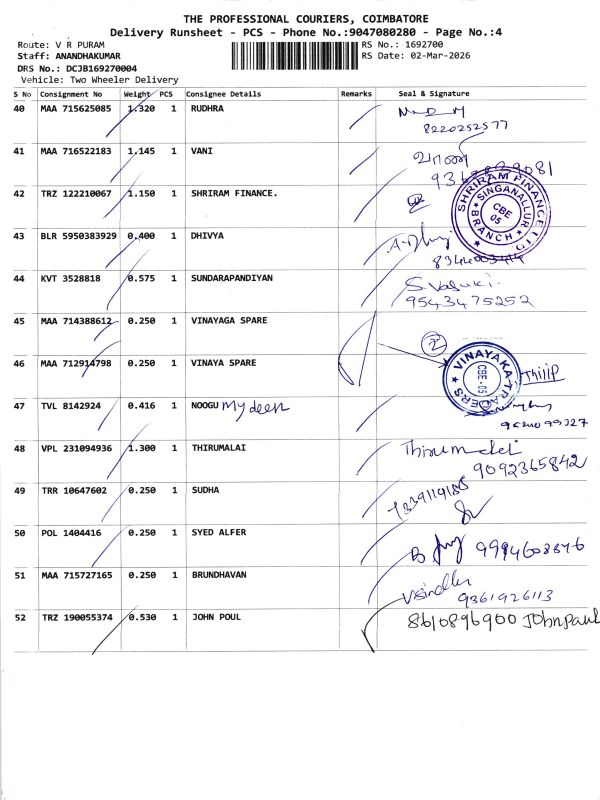 THE PROFESSIONAL COURIERS, COIMBATORE
Delivery Runsheet - PCS - Phone No.:9047080280 - Page No.:4
Route: V R PURAM
RS No.: 1692700
Staff: ANANDHAKUMAR
RS Date: 02-Mar-2026
DRS No.: DCJB169270004
Vehicle: Two Wheeler Delivery
S No Consignment No Weight PCS Consignee Details Remarks Seal & Signature
40 MAA 715625085 1.320 1 RUDHRA
8220252577
41 MAA 716522183 1.145 1 VANI வாணி
42 TRZ 122210067 1.150 1 SHRIRAM FINANCE.
SHRIRAM FINANCE LTD
SINGANALLUR
CBE
05
BRANCH
43 BLR 5950383929 0.400 1 DHIVYA
44 KVT 3528818 0.575 1 SUNDARAPANDIYAN S. Vasuki.
9543475252
45 MAA 714388612 0.250 1 VINAYAGA SPARE
2
46 MAA 712914798 0.250 1 VINAYA SPARE
VINAYAKA TRADERS
CBE-05
Thilip
47 TVL 8142924 0.416 1 NOOGU Mydeen
48 VPL 231094936 1.300 1 THIRUMALAI Thirumalai
9092365842
49 TRR 10647602 0.250 1 SUDHA
50 POL 1404416 0.250 1 SYED ALFER
51 MAA 715727165 0.250 1 BRUNDHAVAN
9361926113
52 TRZ 190055374 0.530 1 JOHN POUL 8610896900 JOhn paul